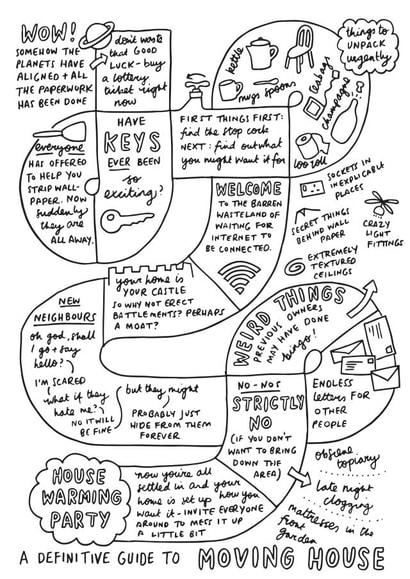 WOW!
SOMEHOW THE
PLANETS HAVE
ALIGNED + ALL
THE PAPERWORK
HAS BEEN DONE
don't waste
that GOOD
LUCK - buy
a lottery
ticket right
now
HAVE
KEYS
EVER BEEN
so
exciting?
everyone
HAS OFFERED
TO HELP YOU
STRIP WALL-
PAPER. NOW
suddenly
they are
ALL AWAY.
FIRST THINGS FIRST:
find the stop cock
NEXT: find out what
you might want it for
things to
UNPACK
urgently
kettle
mugs
spoons
teabags
champagne
loo roll
WELCOME
TO THE BARREN
WASTELAND OF
WAITING FOR
INTERNET TO
BE CONNECTED.
SOCKETS IN
INEXPLICABLE
PLACES
SECRET THINGS
BEHIND WALL
PAPER
CRAZY
LIGHT
FITTINGS
EXTREMELY
TEXTURED
CEILINGS
your home is
YOUR CASTLE
SO WHY NOT ERECT
BATTLEMENTS? PERHAPS
A MOAT?
NEW
NEIGHBOURS
oh god, shall
I go + say
hello?
I'M SCARED
what if they
hate me?
NO IT WILL
BE FINE
but they might
PROBABLY JUST
HIDE FROM THEM
FOREVER
WEIRD THINGS
PREVIOUS OWNERS
MAY HAVE DONE
bingo!
ENDLESS
letters FOR
OTHER
PEOPLE
NO-NOS
STRICTLY
NO
(IF YOU DON'T
WANT TO BRING
DOWN THE
AREA)
obscene
topiary
late night
clogging
mattresses in the
front
garden
HOUSE
WARMING
PARTY
now you're all
settled in and your
home is set up how you
want it - INVITE EVERYONE
AROUND TO MESS IT UP
A LITTLE BIT
A DEFINITIVE GUIDE TO MOVING HOUSE